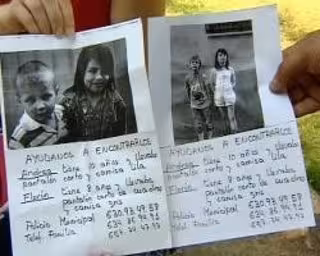 AYUDANOS A ENCONTRARLOS
Andrea tiene 10 años y llevaba
pantalón corto y camisa lila
Florin tiene 8 años y llevaba
pantalón corto de cuadros
y camisa gris
Policia Municipal 630 93 49 58
Telef. Familia
AYUDANOS A ENCONTRARLOS
Andrea tiene 10 años y llevaba
pantalón corto y camisa lila
Florin tiene 8 años y llevaba
pantalón corto de cuadros
y camisa gris
Policia Municipal 630 93 49 58
Telef. Familia